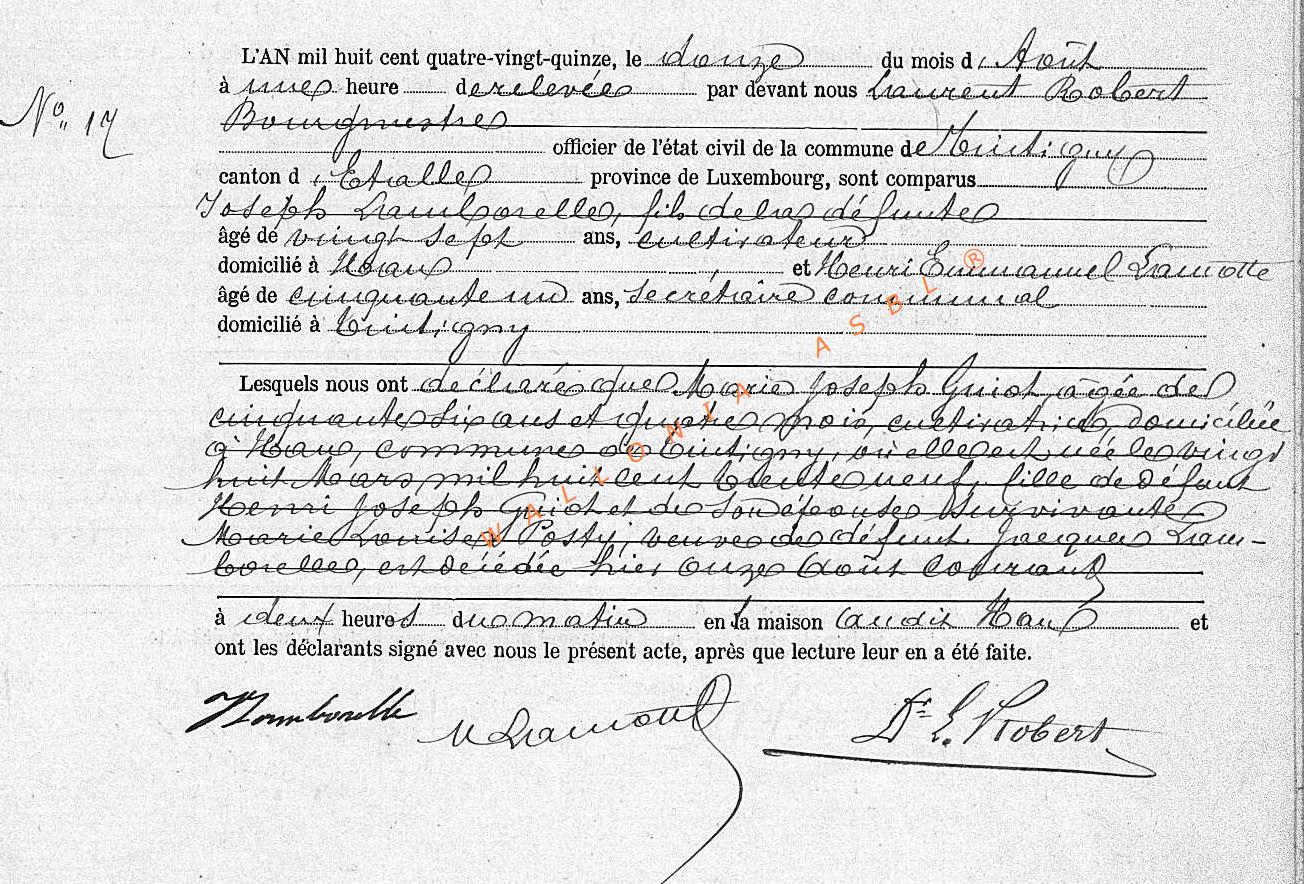 L'AN mil huit cent quatre-vingt-quinze, le douze du mois d'Août
à une heure de relevée par devant nous Laurent Robert
Bourgmestre
No 17
officier de l'état civil de la commune de Tintigny
canton d'Etalle province de Luxembourg, sont comparus
Joseph Lamborelle, fils de la défunte
âgé de vingt sept ans, cultivateur
domicilié à Han et Henri Emmanuel Lamotte
âgé de cinquante un ans, secrétaire communal
domicilié à Tintigny
Lesquels nous ont déclaré que Marie Joseph Guiot agée de
cinquante six ans et quatre mois, cultivatrice, domiciliée
à Han, commune de Tintigny, où elle est née le vingt
huit Mars mil huit cent trente neuf, fille de défunt
Henri Joseph Guiot et de son épouse survivante
Marie Louise Posty, veuve de défunt Jacques Lam-
borelle, est décédée hier onze Août courant
à deux heures du matin en sa maison audit Han et
ont les déclarants signé avec nous le présent acte, après que lecture leur en a été faite.
Lamborelle
Lamotte
Dr L. Robert
WALLONIA ASBL ®